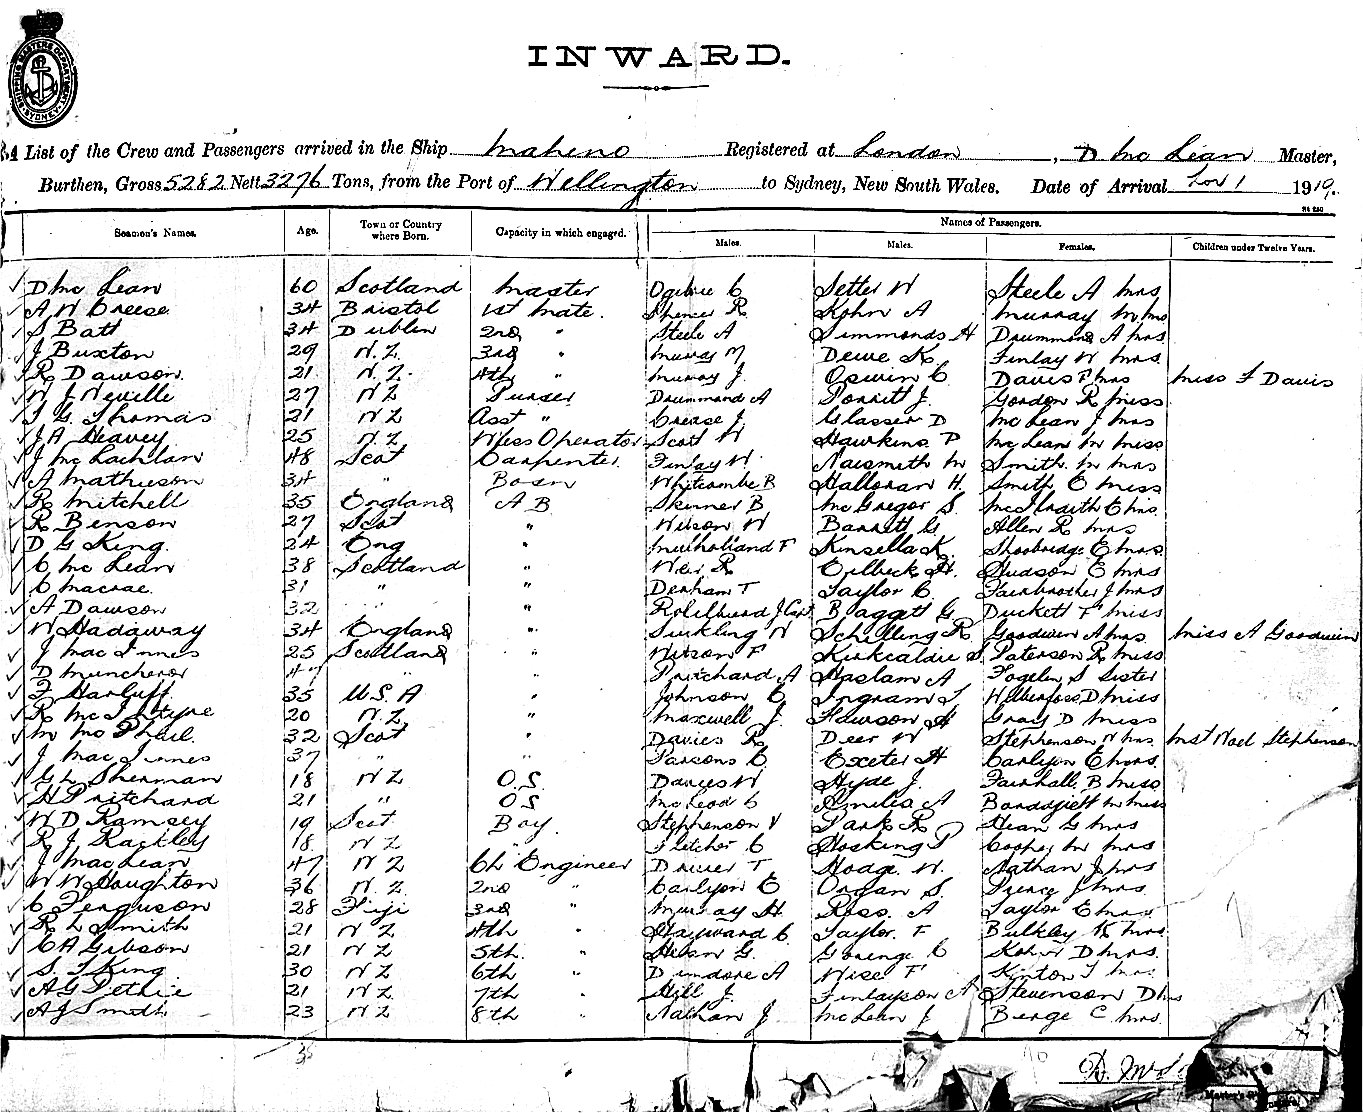 SHIPPING MASTERS DEPARTMENT SYDNEY
INWARD.
A List of the Crew and Passengers arrived in the Ship Maheno Registered at London, D McLean Master,
Burthen, Gross 5282 Nett 3276 Tons, from the Port of Wellington to Sydney, New South Wales. Date of Arrival Nov 1 1919.
Names of Passengers.
Seamen's Names. Age. Town or Country where Born. Capacity in which engaged. Males. Males. Females. Children under Twelve Years.
D McLean 60 Scotland Master Ogilvie C Setter W Steele A Mrs
A W Creese 34 Bristol 1st Mate. Spencer R Kohn A Murray M Mrs
S Batt 34 Dublin 2nd " Steele A Simmonds H Drummond A Mrs
J Buxton 29 N.Z. 3rd " Murray Dewe K Finlay W Mrs
R Dawson 21 N.Z. 4th " Murray J. Oswin C Davis F Mrs Miss F Davis
W J Neville 27 NZ Purser Drummond A Porritt J. Gordon R Miss
T G Thomas 21 NZ Asst " Crease J Glasser D McLean J Mrs
J A Heavey 25 N.Z. W'less Operator Scott W Hawkins D McLean M Miss
J McLachlan 48 Scot Carpenter Finlay W. Naismith M Smith M Mrs
A Mathieson 34 " Bosn Whitcombe R Halloran H. Smith E Miss
R Mitchell 35 England A B Skinner B McGregor S. McIlraith E Mrs
R Benson 27 Scot " Wilson W Barrett G. Allen R Mrs
D G King. 24 Eng " Mulholland F Kinsella K. Shoobridge E Mrs
C McLean 38 Scotland " Weir R Eilbeck H. Hudson E Mrs
C Macrae. 31 " " Denham T Taylor C. Fairbrother J Mrs
A Dawson 32 " " J Capt Baggett G Duckett F Miss
W Hadaway 34 England " Suckling N Schilling R Goodwin A Mrs Miss A Goodwin
J MacInnes 25 Scotland " Wilson F Kirkcaldie S. Paterson R Miss
D 47 " " Pritchard A Haslam A Fogelin S Sister
F Harluff 35 U.S.A " Johnson E Ingram L Wilberfoss D Miss
R McIntyre 20 N.Z. " Maxwell J. Hewson A Gray D Miss
M McPhail. 32 Scot " Davies R Deer W Stephenson N Mrs Mst Noel Stephenson
J MacInnes 37 " " Parsons C Exeter H Carlyon E Mrs
G L Sherman 18 NZ O.S. Davies W Hyde J. Fairhall B Miss
H Pritchard 21 " OS McLeod C Smiles A M Miss
W D Ramsey 19 Scot Boy. Stephenson V Park R Hean G Mrs
R J Rackley 18 NZ " Fletcher C Hosking P Cooper M Mrs
J MacLean 47 NZ Ch Engineer T Hodge W. Nathan J Mrs
W W Houghton 36 N.Z. 2nd " Carlyon E Organ S. Pierce J Mrs
C Ferguson 28 Fiji 3rd " Murray H. Ross. A Taylor E Mrs
R L Smith 21 NZ 4th " Hayward C Taylor. F Bulkley K Mrs
C A Gibson 21 NZ 5th. " Hean G. Goringe C Kohn D Mrs.
S. T King. 30 NZ 6th " Dinsdore A Wise F Kinton T Mrs
A G Pethie 21 NZ 7th " Hill J. Finlayson A Stevenson D Mrs
A J Smith 23 NZ 8th " Nathan J McLean J Berge C Mrs.
D. McL